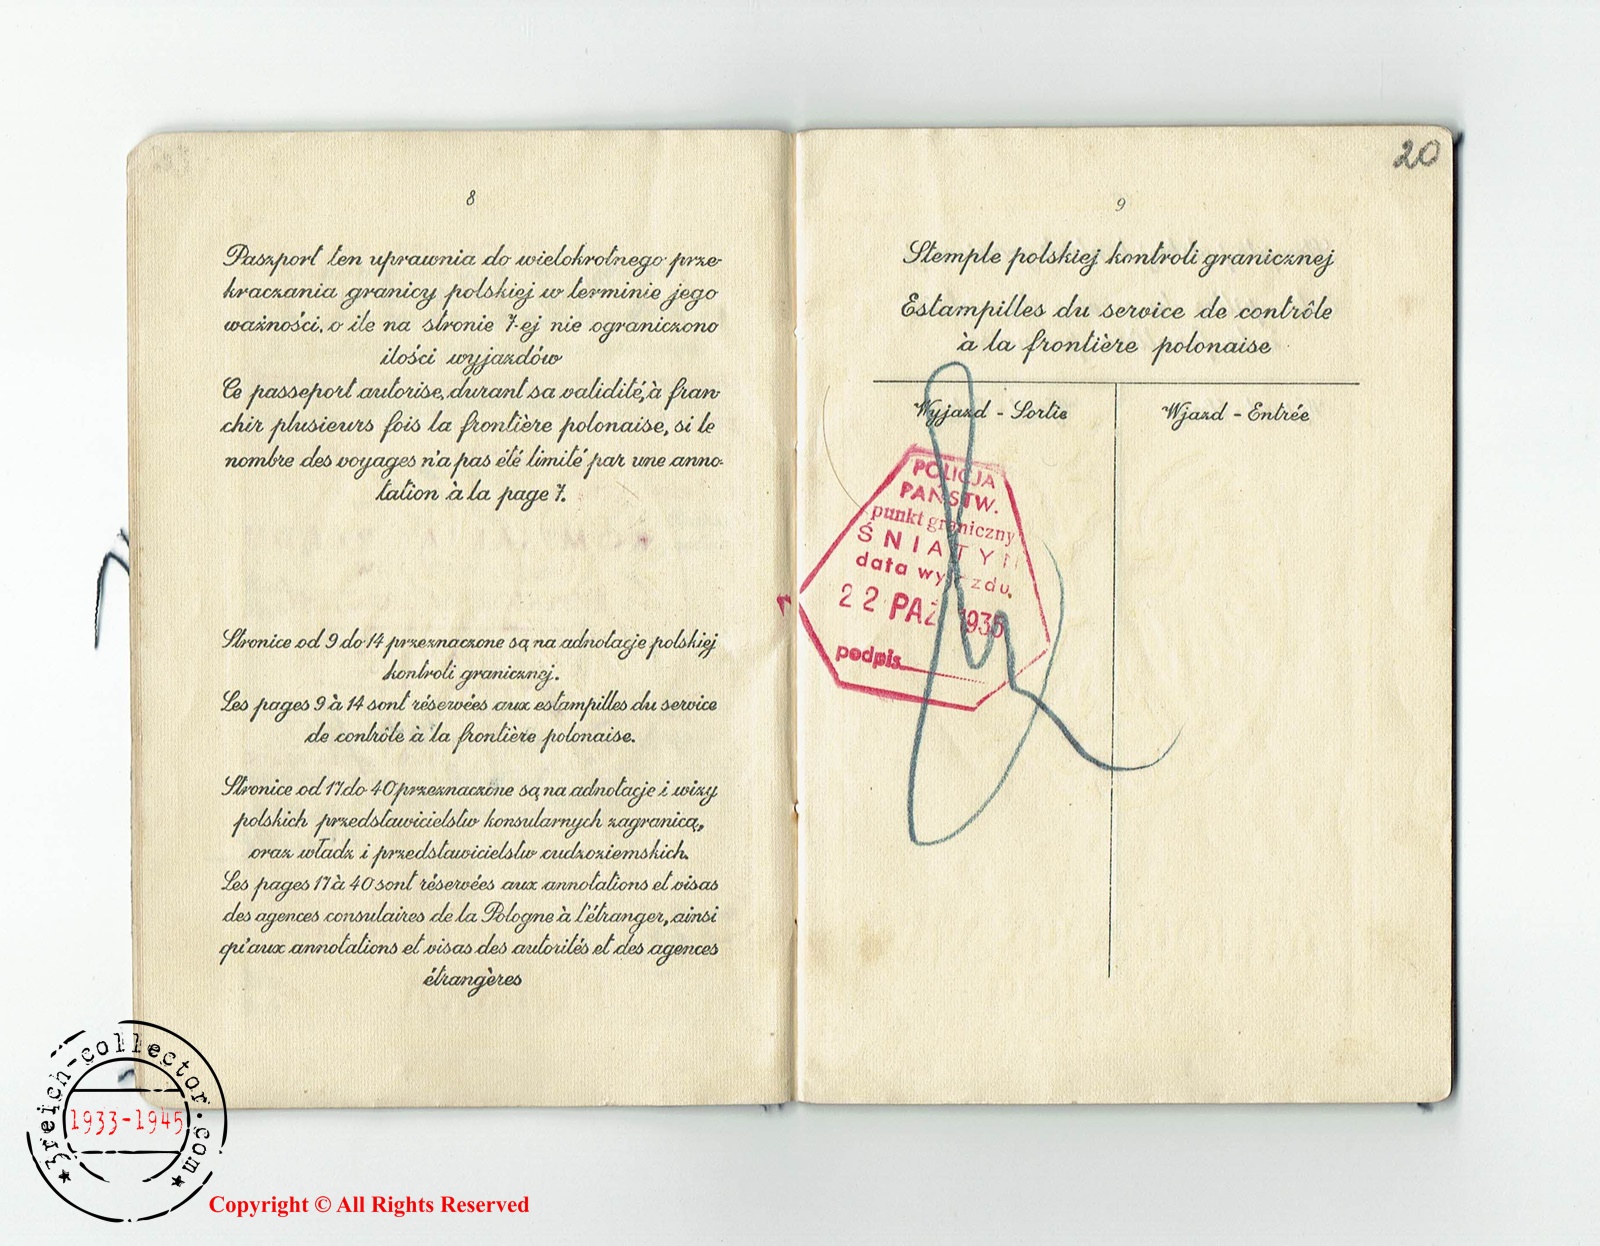 8
Paszport ten uprawnia do wielokrotnego prze-
kraczania granicy polskiej w terminie jego
ważności, o ile na stronie 7-ej nie ograniczono
ilości wyjazdów
Ce passeport autorise, durant sa validité, à fran-
chir plusieurs fois la frontière polonaise, si le
nombre des voyages n'a pas été limité par une anno-
tation à la page 7.
Stronice od 9 do 14 przeznaczone są na adnotacje polskiej
kontroli granicznej.
Les pages 9 à 14 sont réservées aux estampilles du service
de contrôle à la frontière polonaise.
Stronice od 17 do 40 przeznaczone są na adnotacje i wizy
polskich przedstawicielstw konsularnych zagranicą,
oraz władz i przedstawicielstw cudzoziemskich.
Les pages 17 à 40 sont réservées aux annotations et visas
des agences consulaires de la Pologne à l'étranger, ainsi
qu'aux annotations et visas des autorités et des agences
étrangères
20
9
Stemple polskiej kontroli granicznej
Estampilles du service de contrôle
à la frontière polonaise
Wyjazd - Sortie
Wjazd - Entrée
POLICJA
PAŃSTW.
punkt graniczny
ŚNIATYN
data wyjazdu
22 PAŹ 1935
podpis
3reich-collector.com
1933-1945
Copyright © All Rights Reserved